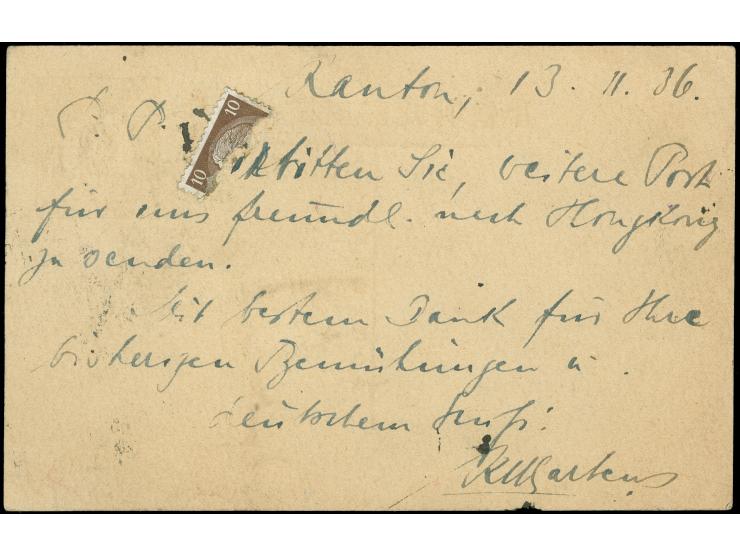 Kanton, 13. 11. 36.
P. P.
10
10
bitten Sie, weitere Post
für uns freundl. nach Hongkong
zu senden.
Mit bestem Dank für Ihre
bisherigen Bemühungen u.
deutschem Gruß!